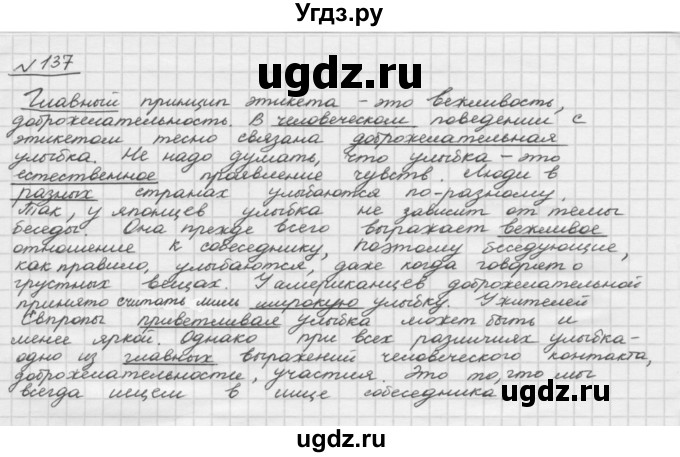 Угдз.ру
№137
ugdz.ru
Главный принцип этикета – это вежливость,
доброжелательность. В человеческом поведении с
этикетом тесно связана доброжелательная
улыбка. Не надо думать, что улыбка – это
естественное проявление чувств. Люди в
разных странах улыбаются по-разному.
Так, у японцев улыбка не зависит от темы
беседы Она прежде всего выражает вежливое
отношение к собеседнику, поэтому беседующие,
как правило, улыбаются, даже когда говорят о
грустных вещах. У американцев доброжелательной
принято считать лишь широкую улыбку. У жителей
Европы приветливая улыбка может быть и
менее яркой. Однако при всех различиях улыбка-
одно из главных выражений человеческого контакта,
доброжелательности, участия. Это то, что мы
всегда ищем в лице собеседника
ugdz.ru
ugdz.ru
ugdz.ru
ugdz.ru